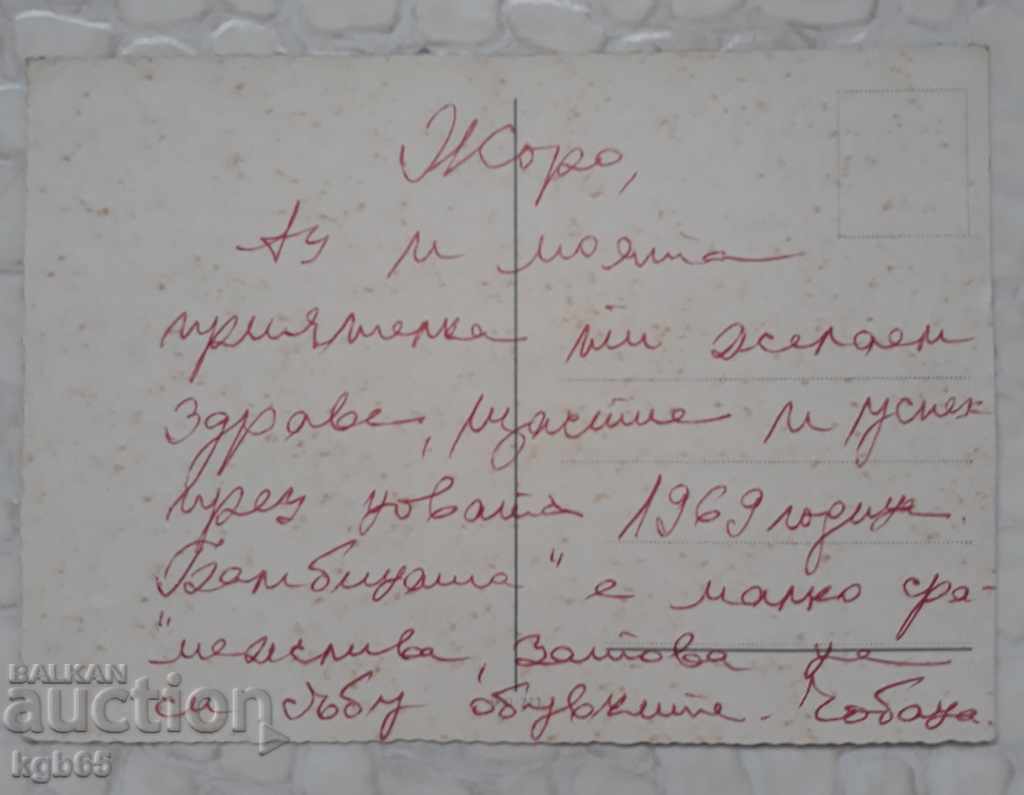 Жоро,
Аз и моята
приятелка ти желаем
здраве, щастие и успех
през новата 1969 година.
"Бамбината" е малко сра-
межлива, затова не
си събу обувките. Чобана.
BALKAN
auction
kgb65